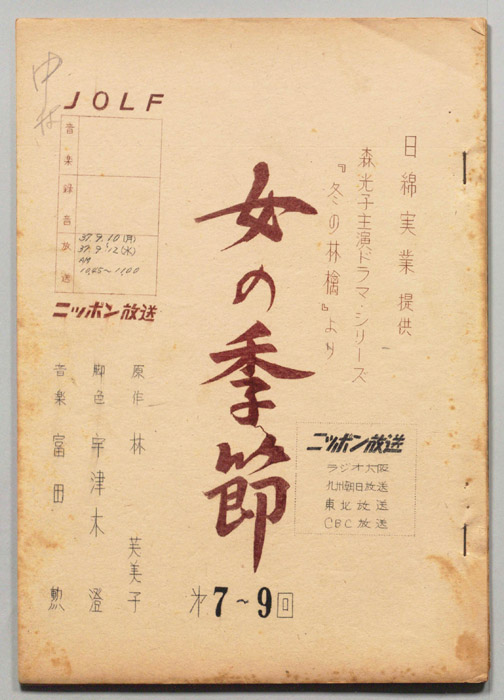 日綿実業 提供
森光子主演ドラマ・シリーズ
『冬の林檎』より
女の季節
第7〜9回
JOLF
音楽
録音
放送
37.9.10(月)
37.9.12(水)
AM
10,45〜11,00
ニッポン放送
原作 林 芙美子
脚色 宇津木 澄
音楽 富田 勲
ニッポン放送
ラジオ大阪
九州朝日放送
東北放送
CBC放送